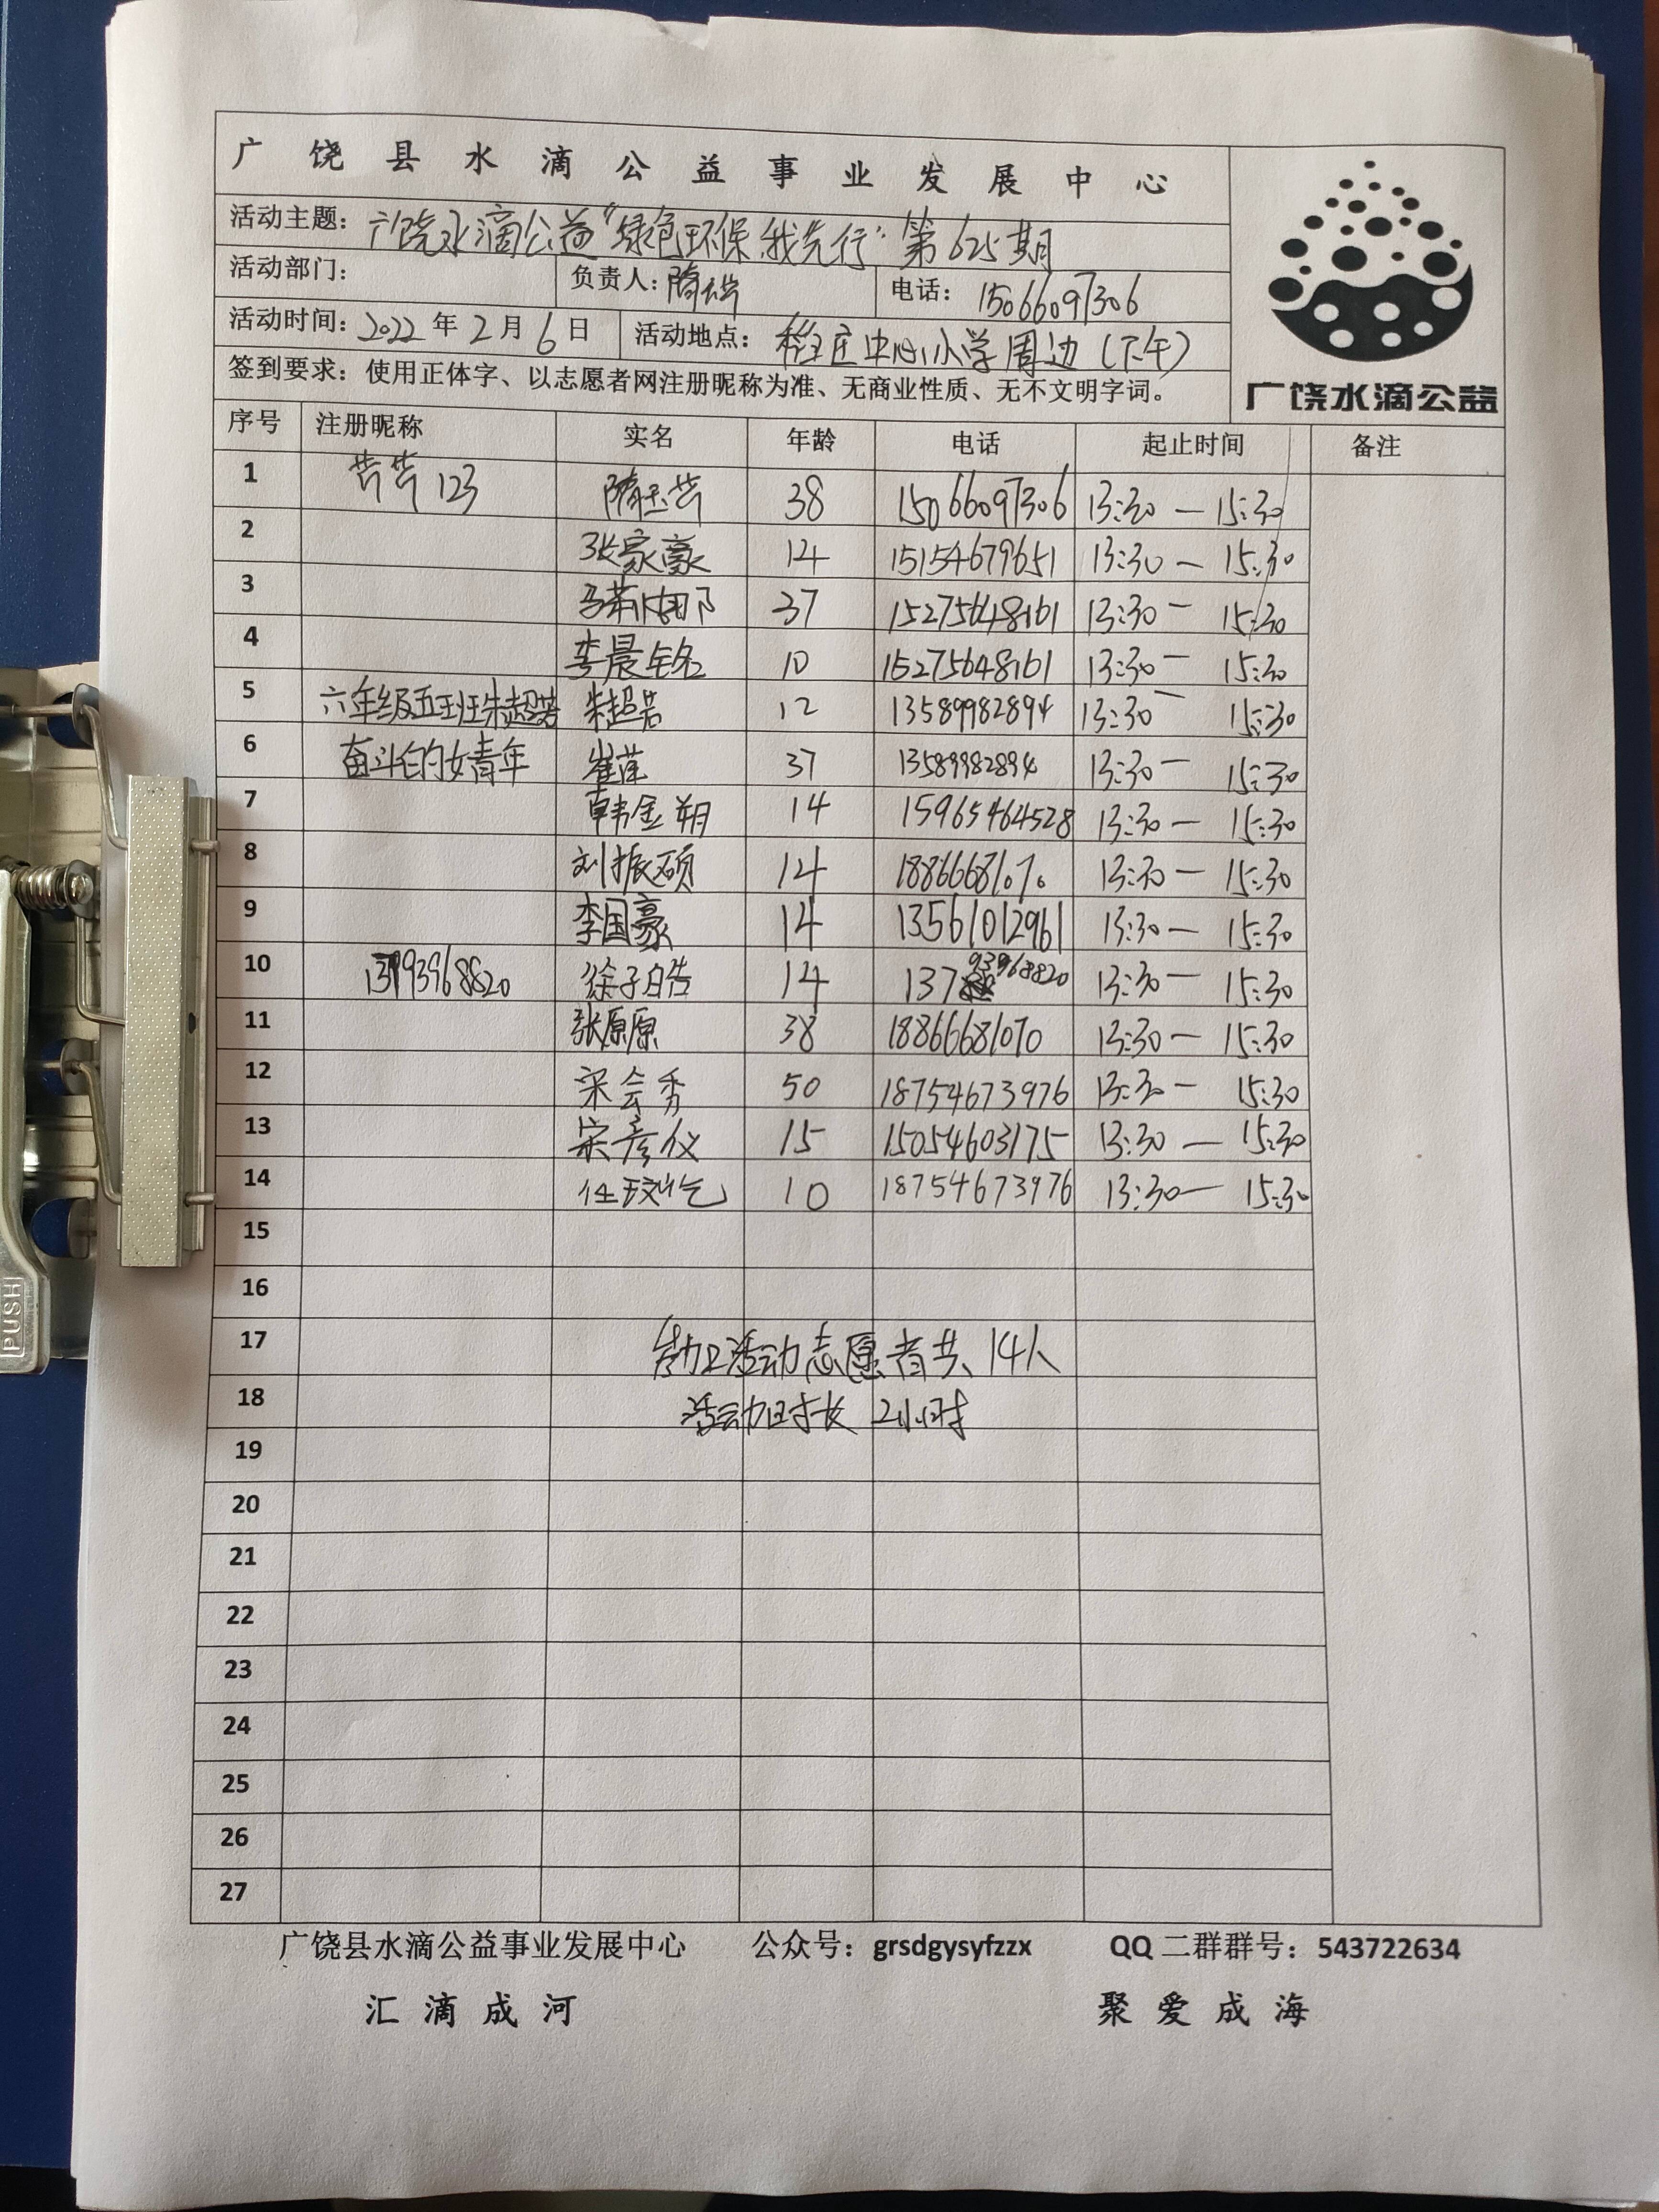 广饶县水滴公益事业发展中心
活动主题：广饶水滴公益“绿色环保我先行”第625期
活动部门： 负责人：隋玉芸 电话：15066097306
活动时间：2022年2月6日 活动地点：稻庄中心小学周边（下午）
签到要求：使用正体字、以志愿者网注册昵称为准、无商业性质、无不文明字词。
广饶水滴公益
序号 注册昵称 实名 年龄 电话 起止时间 备注
1 芸芸123 隋玉芸 38 15066097306 13:30—15:30
2 张家豪 14 15154679651 13:30—15:30
3 37 15275648161 13:30—15:30
4 李晨铭 10 15275648161 13:30—15:30
5 六年级五班朱超若 朱超若 12 13589982894 13:30—15:30
6 奋斗的女青年 崔莲 37 13589982894 13:30—15:30
7 韩金朔 14 15965464528 13:30—15:30
8 刘振硕 14 18866681070 13:30—15:30
9 李国豪 14 13561012961 13:30—15:30
10 13793968820 徐子皓 14 13793968820 13:30—15:30
11 张原原 38 18866681070 13:30—15:30
12 宋会秀 50 18754673976 13:30—15:30
13 宋彦仪 15 15054603175 13:30—15:30
14 10 18754673976 13:30—15:30
15
16
17 参加活动志愿者共14人
18 活动时长 2小时
19
20
21
22
23
24
25
26
27
广饶县水滴公益事业发展中心 公众号：grsdgysyfzzx QQ二群群号：543722634
汇滴成河 聚爱成海
PUSH